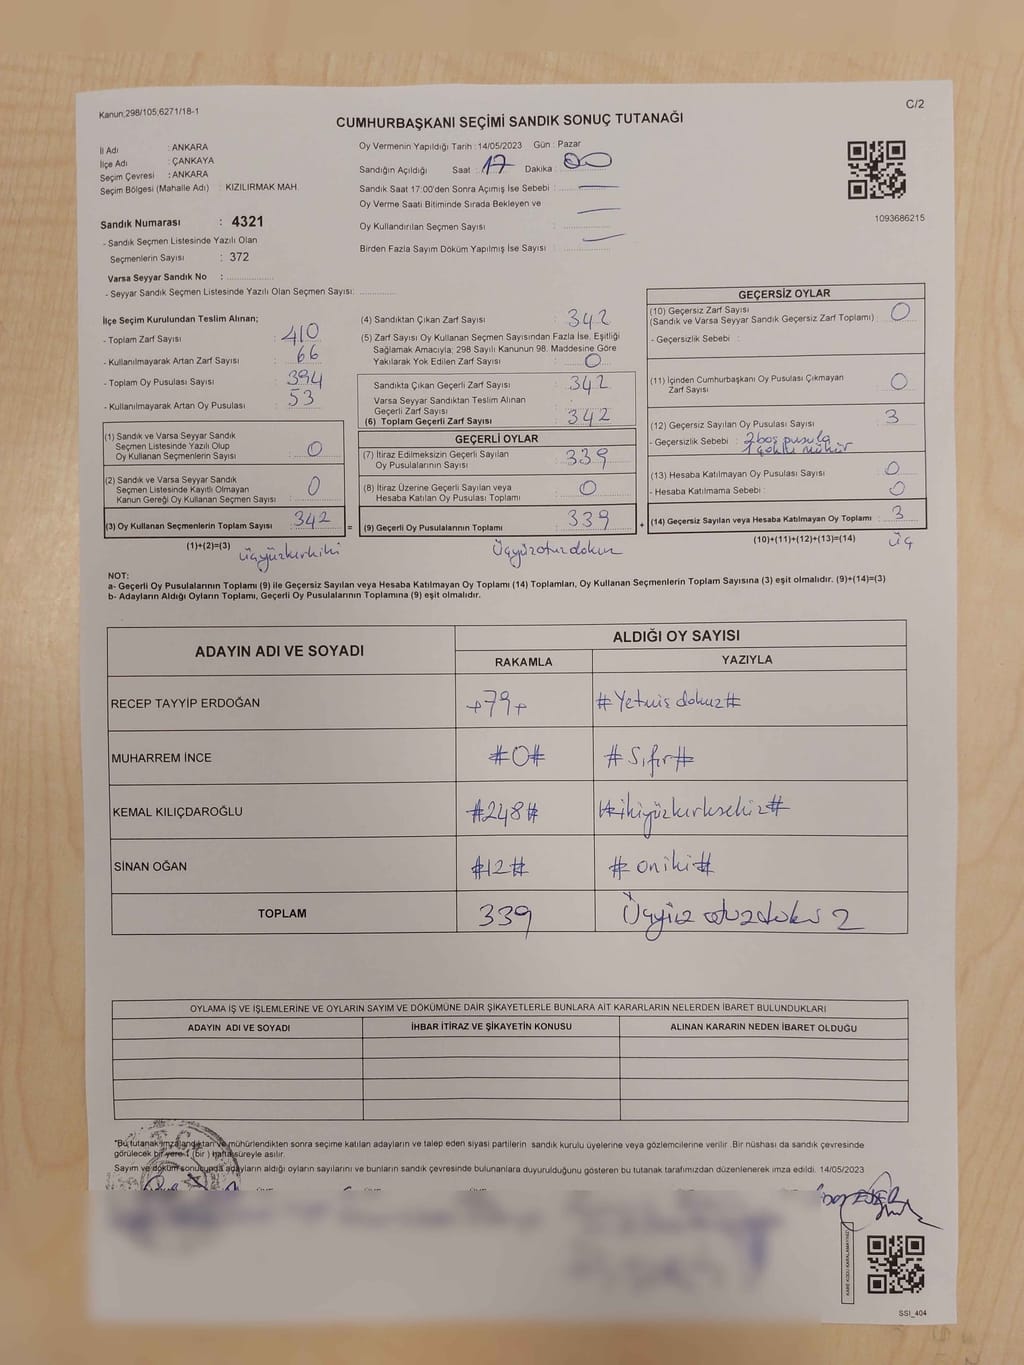 Kanun;298/105;6271/18-1
C/2
CUMHURBAŞKANI SEÇİMİ SANDIK SONUÇ TUTANAĞI
İl Adı : ANKARA
İlçe Adı : ÇANKAYA
Seçim Çevresi : ANKARA
Seçim Bölgesi (Mahalle Adı) : KIZILIRMAK MAH.
Sandık Numarası : 4321
- Sandık Seçmen Listesinde Yazılı Olan
Seçmenlerin Sayısı : 372
Varsa Seyyar Sandık No :
- Seyyar Sandık Seçmen Listesinde Yazılı Olan Seçmen Sayısı:
Oy Vermenin Yapıldığı Tarih :14/05/2023 Gün : Pazar
Sandığın Açıldığı Saat : 17 Dakika : 00
Sandık Saat 17:00'den Sonra Açımış İse Sebebi :
Oy Verme Saati Bitiminde Sırada Bekleyen ve
Oy Kullandırılan Seçmen Sayısı :
Birden Fazla Sayım Döküm Yapılmış İse Sayısı :
1093686215
İlçe Seçim Kurulundan Teslim Alınan;
- Toplam Zarf Sayısı : 410
- Kullanılmayarak Artan Zarf Sayısı : 66
- Toplam Oy Pusulası Sayısı : 394
- Kullanılmayarak Artan Oy Pusulası : 53
(1) Sandık ve Varsa Seyyar Sandık
Seçmen Listesinde Yazılı Olup
Oy Kullanan Seçmenlerin Sayısı : 0
(2) Sandık ve Varsa Seyyar Sandık
Seçmen Listesinde Kayıtlı Olmayan
Kanun Gereği Oy Kullanan Seçmen Sayısı : 0
(3) Oy Kullanan Seçmenlerin Toplam Sayısı : 342 =
(1)+(2)=(3)
üçyüzkırkiki
(4) Sandıktan Çıkan Zarf Sayısı : 342
(5) Zarf Sayısı Oy Kullanan Seçmen Sayısından Fazla İse, Eşitliği
Sağlamak Amacıyla; 298 Sayılı Kanunun 98. Maddesine Göre
Yakılarak Yok Edilen Zarf Sayısı : 0
Sandıkta Çıkan Geçerli Zarf Sayısı : 342
Varsa Seyyar Sandıktan Teslim Alınan
Geçerli Zarf Sayısı :
(6) Toplam Geçerli Zarf Sayısı : 342
GEÇERLİ OYLAR
(7) İtiraz Edilmeksizin Geçerli Sayılan
Oy Pusulalarının Sayısı : 339
(8) İtiraz Üzerine Geçerli Sayılan veya
Hesaba Katılan Oy Pusulası Toplamı : 0
(9) Geçerli Oy Pusulalarının Toplamı : 339 +
Üçyüzotuzdokuz
GEÇERSİZ OYLAR
(10) Geçersiz Zarf Sayısı
(Sandık ve Varsa Seyyar Sandık Geçersiz Zarf Toplamı) : 0
- Geçersizlik Sebebi :
(11) İçinden Cumhurbaşkanı Oy Pusulası Çıkmayan
Zarf Sayısı : 0
(12) Geçersiz Sayılan Oy Pusulası Sayısı : 3
- Geçersizlik Sebebi : 2 boş pusula
1 mühür
(13) Hesaba Katılmayan Oy Pusulası Sayısı : 0
- Hesaba Katılmama Sebebi : 0
(14) Geçersiz Sayılan veya Hesaba Katılmayan Oy Toplamı : 3
(10)+(11)+(12)+(13)=(14)
üç
NOT:
a- Geçerli Oy Pusulalarının Toplamı (9) ile Geçersiz Sayılan veya Hesaba Katılmayan Oy Toplamı (14) Toplamları, Oy Kullanan Seçmenlerin Toplam Sayısına (3) eşit olmalıdır. (9)+(14)=(3)
b- Adayların Aldığı Oyların Toplamı, Geçerli Oy Pusulalarının Toplamına (9) eşit olmalıdır.
ADAYIN ADI VE SOYADI
ALDIĞI OY SAYISI
RAKAMLA YAZIYLA
RECEP TAYYİP ERDOĞAN +79+ #Yetmiş dokuz#
MUHARREM İNCE #0# #Sıfır#
KEMAL KILIÇDAROĞLU #248# #ikiyüzkırksekiz#
SİNAN OĞAN #12# #oniki#
TOPLAM 339 Üçyüz otuzdokuz
OYLAMA İŞ VE İŞLEMLERİNE VE OYLARIN SAYIM VE DÖKÜMÜNE DAİR ŞİKAYETLERLE BUNLARA AİT KARARLARIN NELERDEN İBARET BULUNDUKLARI
ADAYIN ADI VE SOYADI İHBAR İTİRAZ VE ŞİKAYETİN KONUSU ALINAN KARARIN NEDEN İBARET OLDUĞU
"Bu tutanak imzalandıktan ve mühürlendikten sonra seçime katılan adayların ve talep eden siyasi partilerin sandık kurulu üyelerine veya gözlemcilerine verilir .Bir nüshası da sandık çevresinde
görülecek bir yere 1 (bir ) hafta süreyle asılır.
Sayım ve döküm sonucunda adayların aldığı oyların sayılarını ve bunların sandık çevresinde bulunanlara duyurulduğunu gösteren bu tutanak tarafımızdan düzenlenerek imza edildi. 14/05/2023
KARE KODU KARALAMAYINIZ
SSI_404